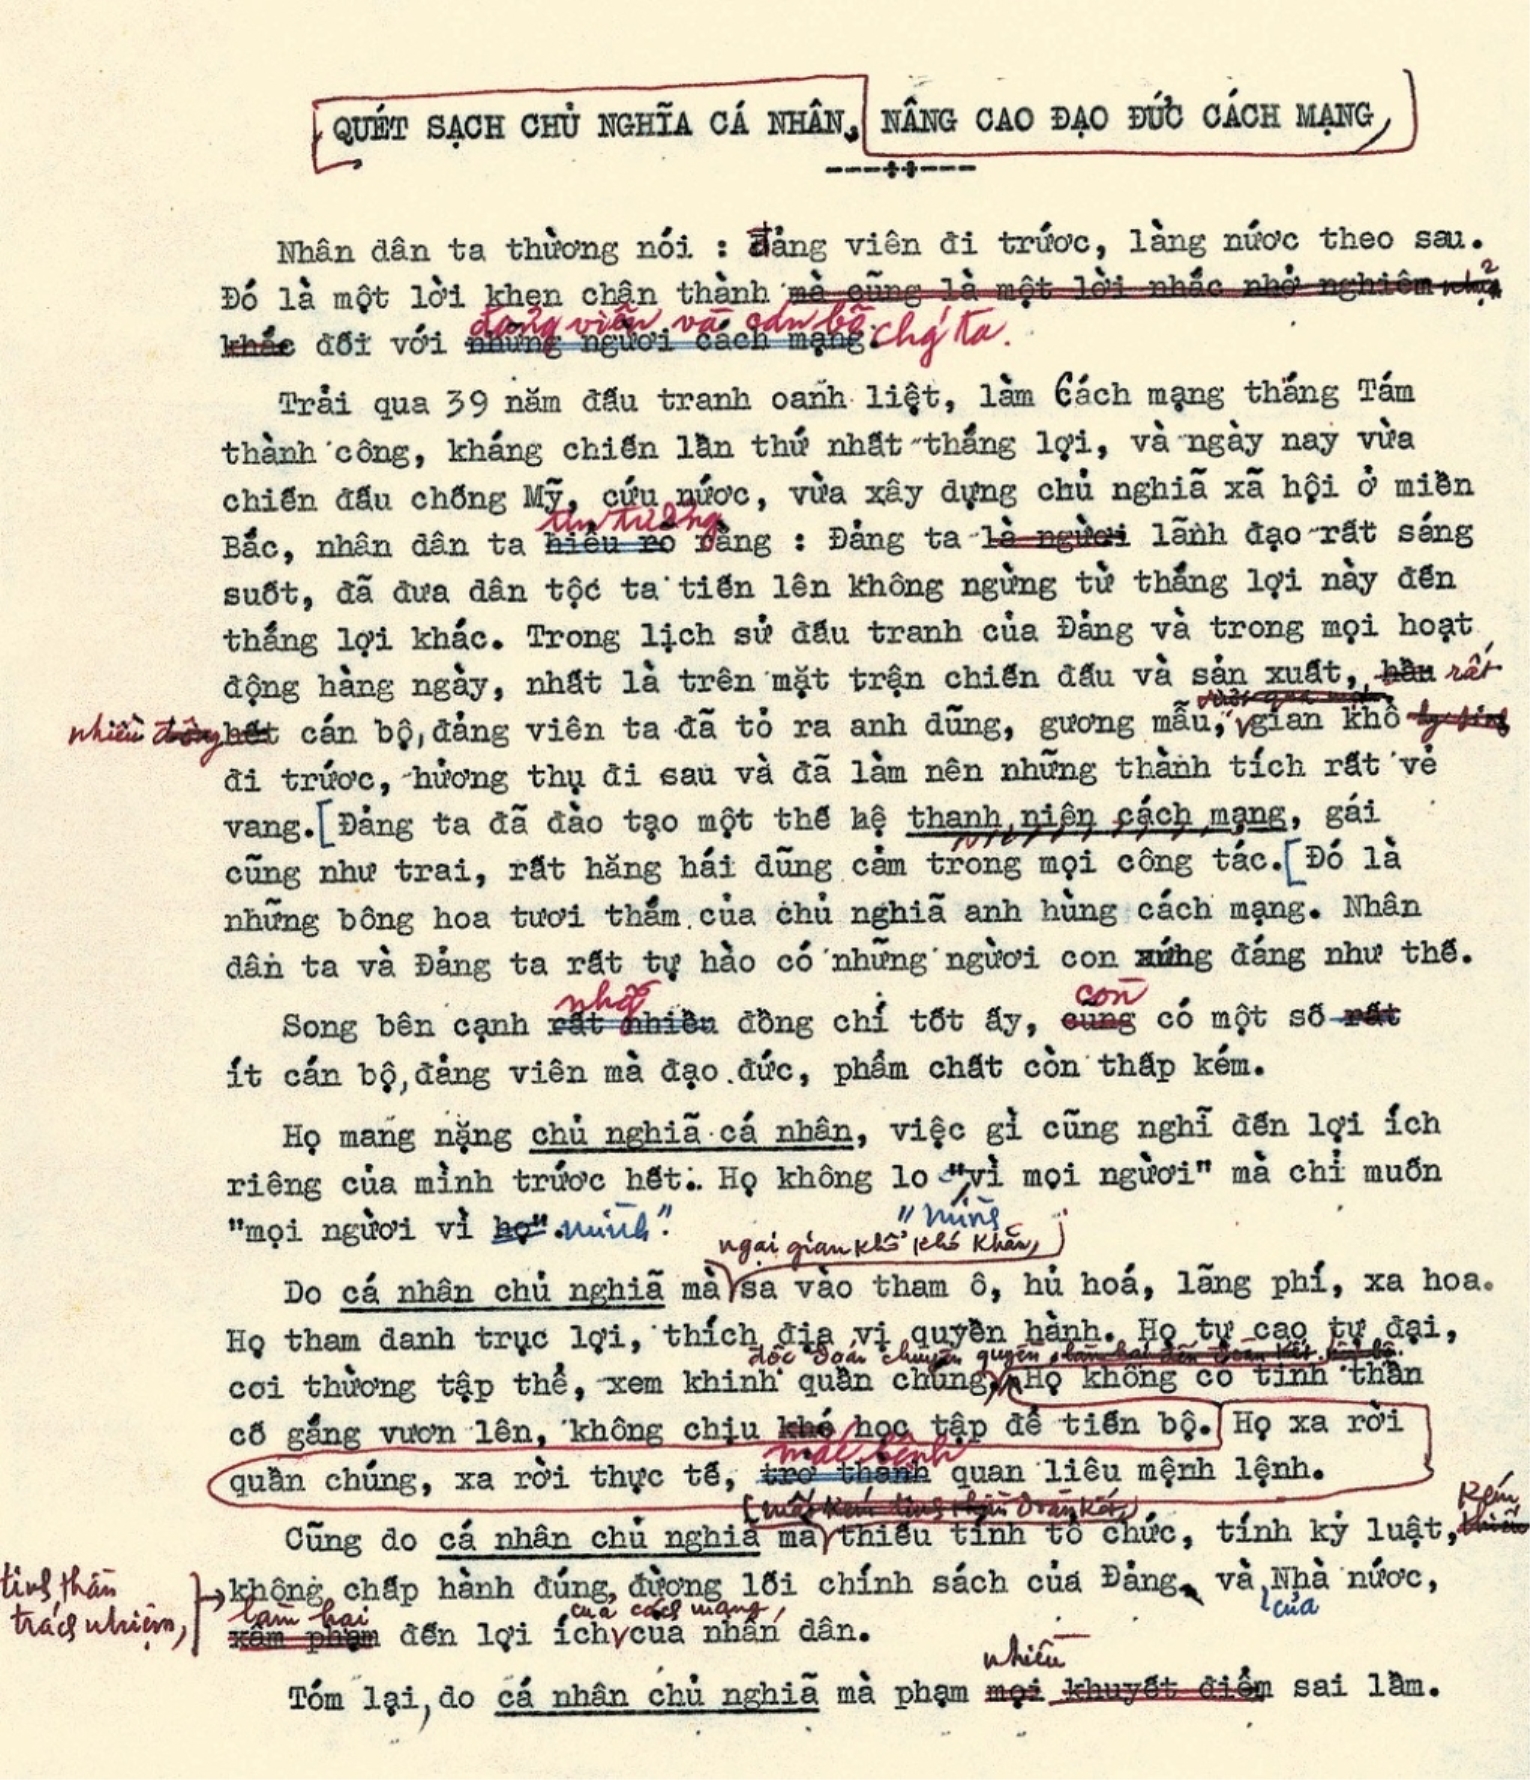 QUÉT SẠCH CHỦ NGHĨA CÁ NHÂN, NÂNG CAO ĐẠO ĐỨC CÁCH MẠNG
Nhân dân ta thường nói : đảng viên đi trước, làng nước theo sau.
Đó là một lời khen chân thành mà cũng là một lời nhắc nhở nghiêm
đảng viên và cán bộ chúng ta.
khắc đối với những người cách mạng.
Trải qua 39 năm đấu tranh oanh liệt, làm Cách mạng tháng Tám
thành công, kháng chiến lần thứ nhất thắng lợi, và ngày nay vừa
chiến đấu chống Mỹ, cứu nước, vừa xây dựng chủ nghiã xã hội ở miền
tin tưởng
Bắc, nhân dân ta hiểu rõ rằng : Đảng ta là người lãnh đạo rất sáng
suốt, đã đưa dân tộc ta tiến lên không ngừng từ thắng lợi này đến
thắng lợi khác. Trong lịch sử đấu tranh của Đảng và trong mọi hoạt
động hàng ngày, nhất là trên mặt trận chiến đấu và sản xuất, hầu rất
nhiều hết cán bộ, đảng viên ta đã tỏ ra anh dũng, gương mẫu, gian khổ
đi trước, hưởng thụ đi sau và đã làm nên những thành tích rất vẻ
vang. [Đảng ta đã đào tạo một thế hệ thanh niên cách mạng, gái
cũng như trai, rất hăng hái dũng cảm trong mọi công tác. [Đó là
những bông hoa tươi thắm của chủ nghiã anh hùng cách mạng. Nhân
dân ta và Đảng ta rất tự hào có những người con xứng đáng như thế.
những còn
Song bên cạnh rất nhiều đồng chí tốt ấy, cũng có một số rất
ít cán bộ, đảng viên mà đạo đức, phẩm chất còn thấp kém.
Họ mang nặng chủ nghiã cá nhân, việc gì cũng nghĩ đến lợi ích
riêng của mình trước hết. Họ không lo "vì mọi người" mà chỉ muốn
"mọi người vì họ". mình". "mình
ngại gian khổ khó khăn,
Do cá nhân chủ nghiã mà sa vào tham ô, hủ hoá, lãng phí, xa hoa.
Họ tham danh trục lợi, thích địa vị quyền hành. Họ tự cao tự đại,
độc đoán chuyên quyền
coi thường tập thể, xem khinh quần chúng, Họ không có tinh thần
cố gắng vươn lên, không chịu khó học tập để tiến bộ. Họ xa rời
mắc bệnh
quần chúng, xa rời thực tế, trở thành quan liêu mệnh lệnh.
Cũng do cá nhân chủ nghiã mà thiếu tính tổ chức, tính kỷ luật, kém
tinh thần
trách nhiệm,
không chấp hành đúng đường lối chính sách của Đảng và của Nhà nước,
làm hại của cách mạng,
xâm phạm đến lợi ích của nhân dân.
nhiều
Tóm lại, do cá nhân chủ nghiã mà phạm mọi khuyết điểm sai lầm.